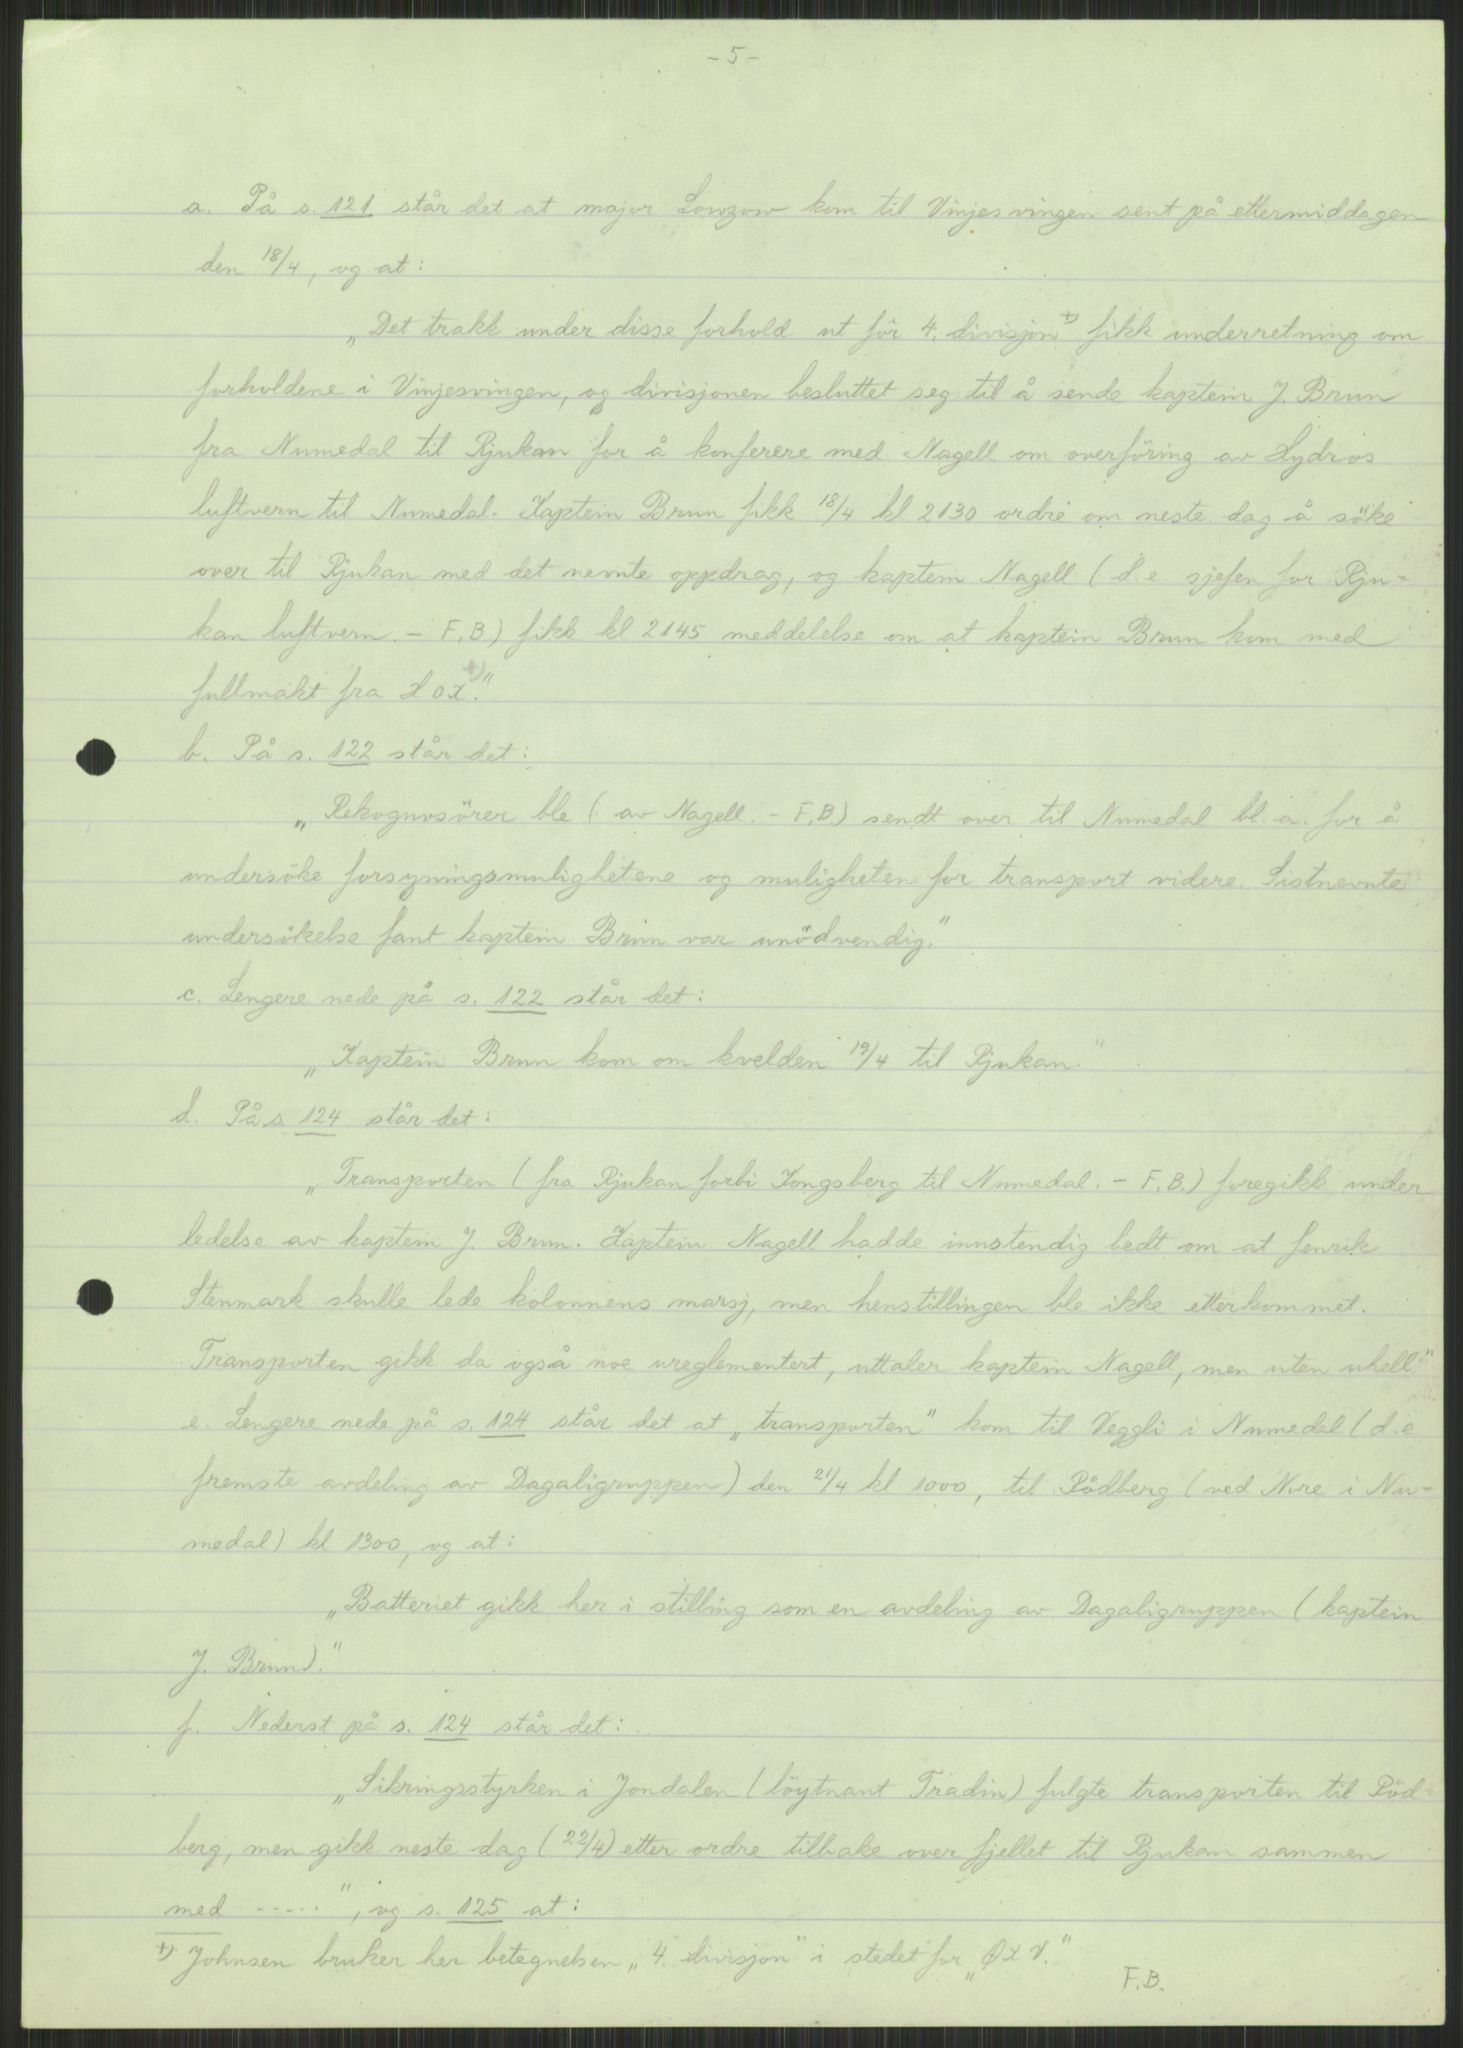 - 5 -
a. På s. 121 står det at major Lowzow kom til Vinjesvingen sent på ettermiddagen
den 18/4, og at:
„Det trakk under disse forhold ut för 4. divisjon +) fikk underretning om
forholdene i Vinjesvingen, og divisjonen besluttet seg til å sende kaptein J. Brun
fra Numedal til Rjukan for å konferere med Nagell om overföring av Hydros
luftvern til Numedal. Kaptein Brun fikk 18/4 kl 2130 ordre om neste dag å söke
over til Rjukan med det nevnte oppdrag, og kaptein Nagell (d.e. sjefen for Rju-
kan luftvern. - F.B.) fikk kl 2145 meddelelse om at kaptein Brun kom med
fullmakt fra HOK +)."
b. På s. 122 står det:
„Rekognosörer ble (av Nagell. - F.B.) sendt over til Numedal bl. a. for å
undersöke forsyningsmulighetene og muligheten for transport videre. Sistnevnte
undersökelse fant kaptein Brun var unödvendig."
c. Lengere nede på s. 122 står det:
„Kaptein Brun kom om kvelden 19/4 til Rjukan."
d. På s. 124 står det:
„Transporten (fra Rjukan forbi Kongsberg til Numedal. - F.B.) foregikk under
ledelse av kaptein J. Brun. Kaptein Nagell hadde innstendig bedt om at fenrik
Stenmark skulle lede kolonnens marsj, men henstillingen ble ikke etterkommet.
Transporten gikk da også noe ureglementert, uttaler kaptein Nagell, men uten uhell."
e. Lengere nede på s. 124 står det at „transporten" kom til Veggli i Numedal (d.e
fremste avdeling av Dagaligruppen) den 21/4 kl 1000, til Rödberg (ved Nore i Nu-
medal) kl 1300, og at:
„Batteriet gikk her i stilling som en avdeling av Dagaligruppen (kaptein
J. Brun)."
f. Nederst på s. 124 står det:
„Sikringsstyrken i Jondalen (löytnant Tradin) fulgte transporten til Röd-
berg, men gikk neste dag (22/4) etter ordre tilbake over fjellet til Rjukan sammen
med -----", og s. 125 at:
+) Johnsen bruker her betegnelsen „4. divisjon" i stedet for „ØKV."
F.B.